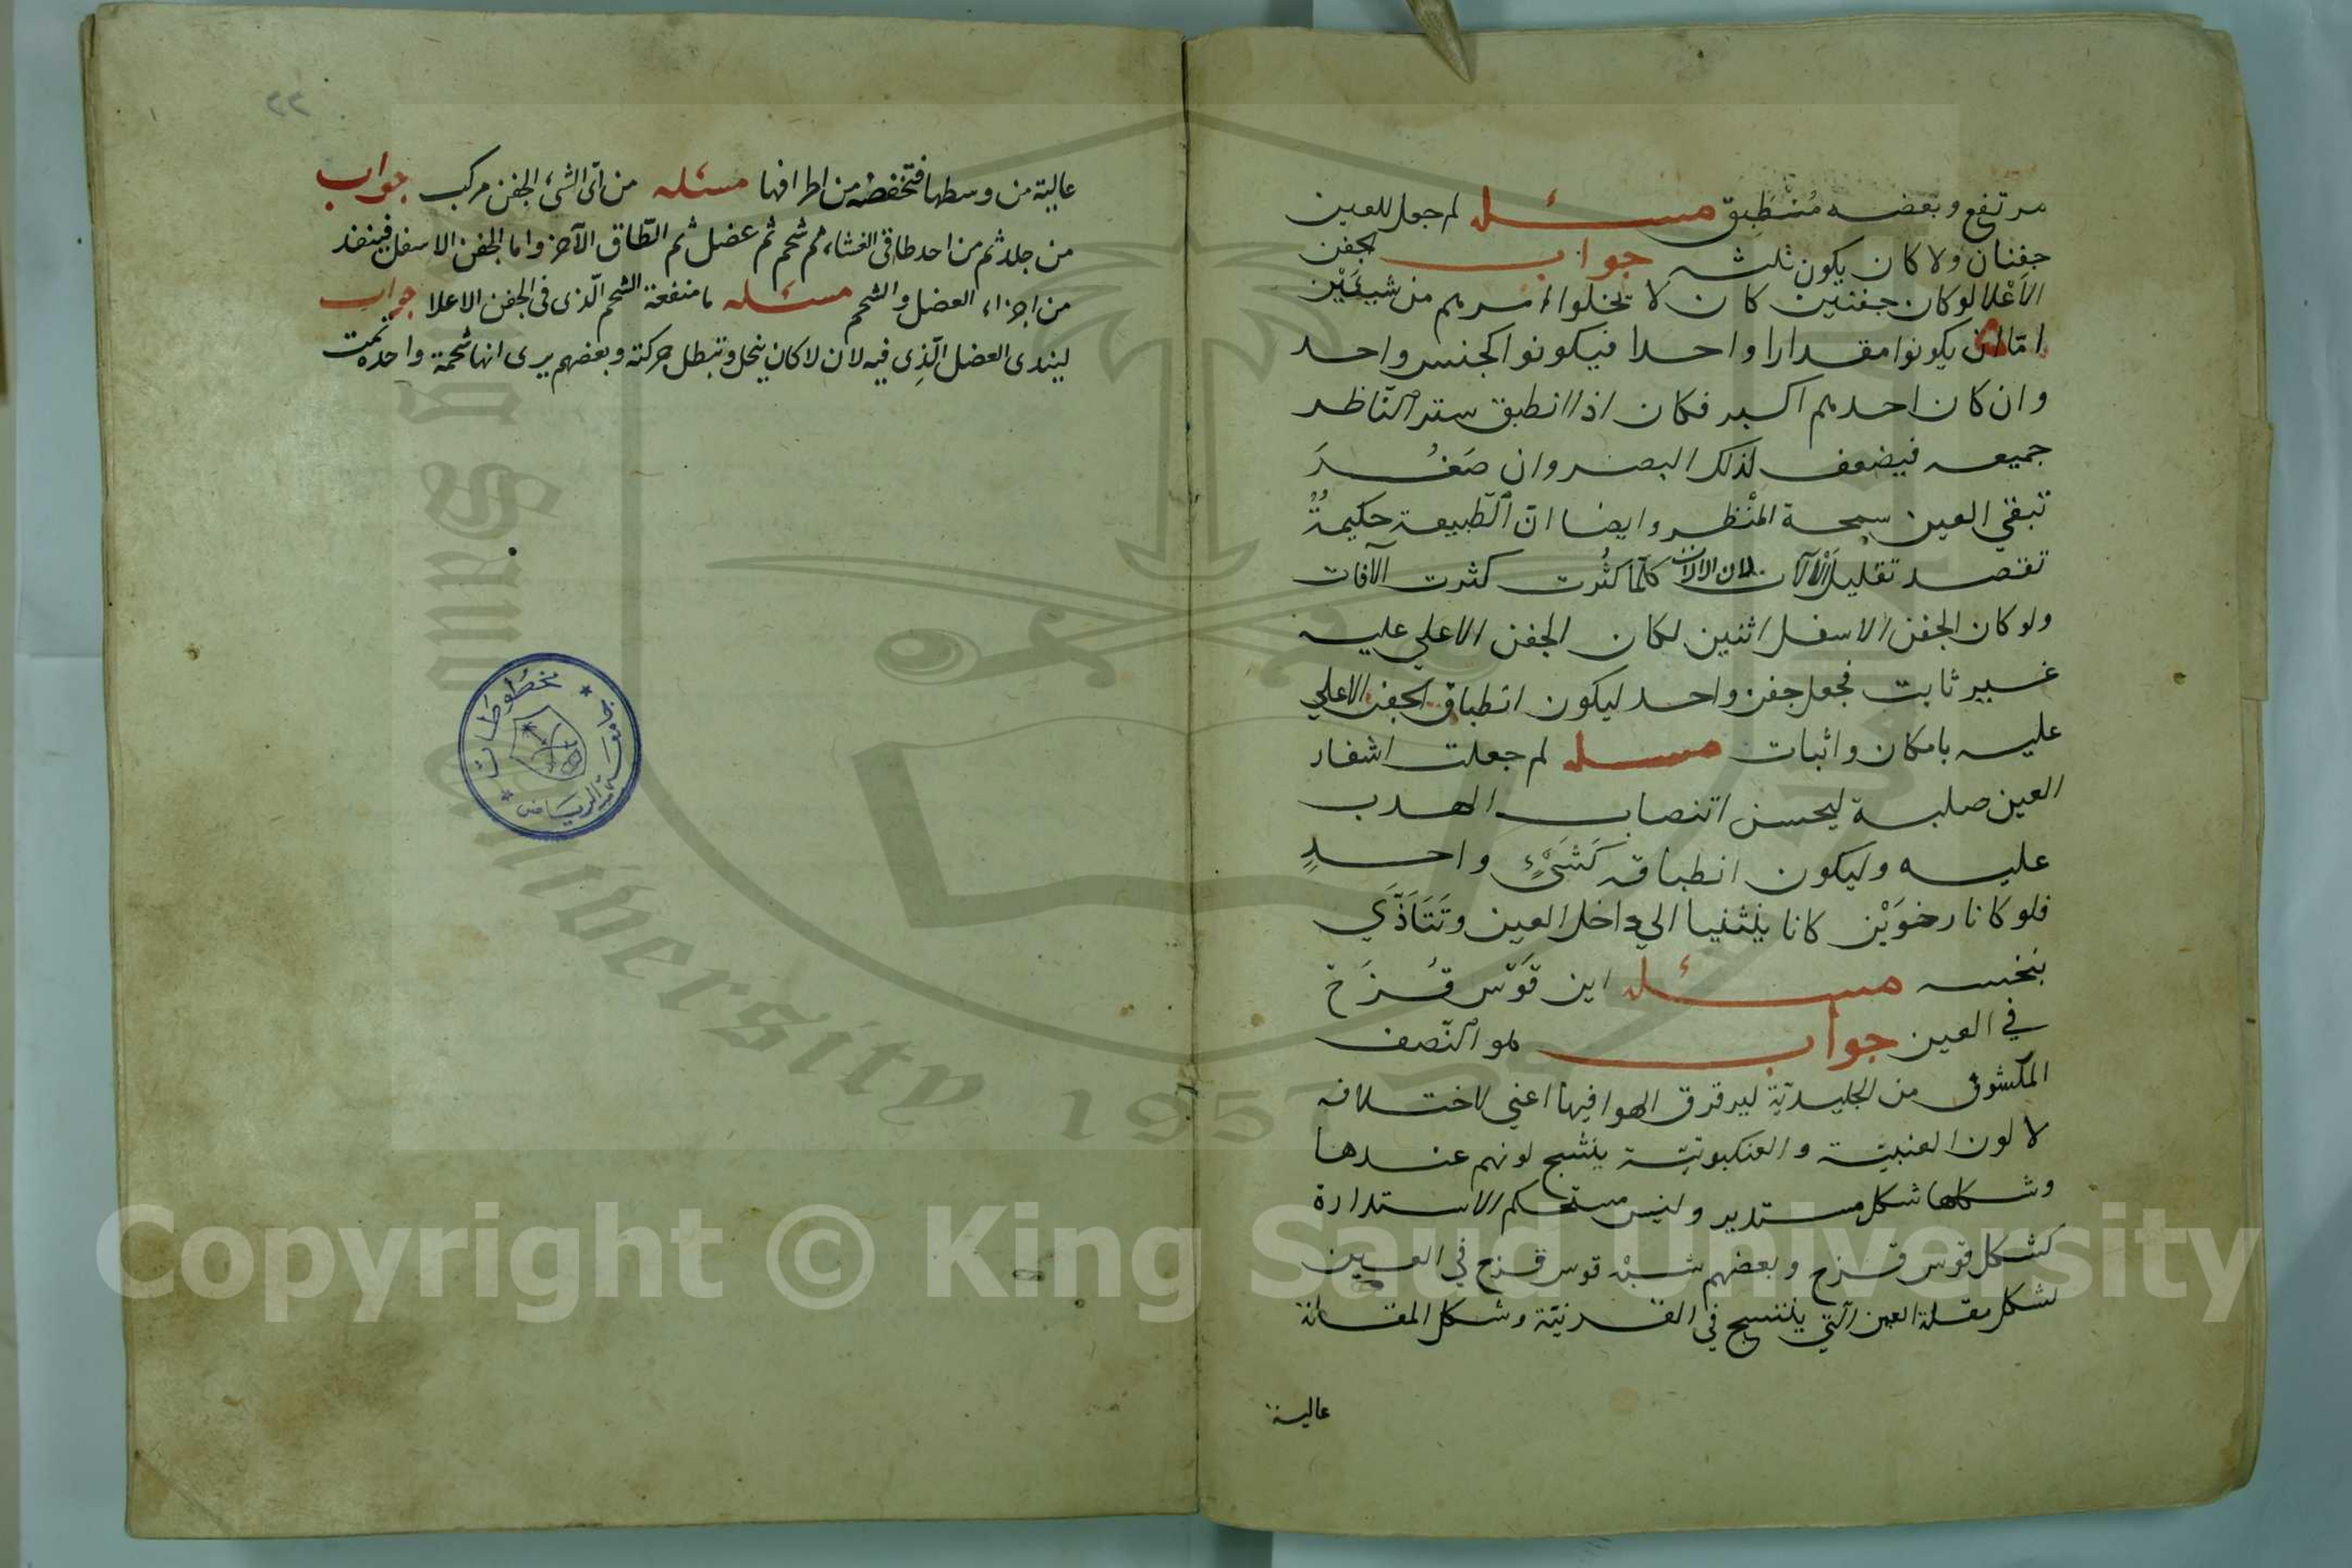 مرتفع وبعضه مُنْطَبِق مسئله لم جعل للعين
جفنان ولا كان يكون ثلثه جواب الجفن
الاَعْلا لو كان جفنين كان لا تخلوا امرهم من شيئَيْن
امّا ان يكونوا مقدارا واحدا فيكونوا كجنس واحد
وان كان احدهم اكبر فكان اذا انطبق ستر النّاظر
جميعه فيضعف لذلك البصر وان صَغُرَ
تبقي العين سمجة المنْظر وايضا انّ الطّبيعة حكيمةٌ
تقصد تقليل الْآلات لان الالات كلّما كثُرت كثرت الآفات
ولو كان الجفن الاسفل اثنين لكان الجفن الاعلي عليه
غير ثابت فجعل جفن واحد ليكون انطباق الجفن الاعلي
عليه بامكان واثبات مسله لم جعلت اشفار
العين صلبة ليحسن انتصاب الهدب
عليه وليكون انطباقه كَشَيْءٍ واحدٍ
فلو كانا رخوَيْن كانا ينثنيا الي داخل العين وتَتَاَذَّي
بنخسه مسئله اين قَوْس قُزَح
في العين جواب هو النّصف
المكشوف من الجليديّة ليرقرق الهوا فيها اعني لاختلافه
لا لون العنبيّة والعنكبوتيّة ينشبح لونهم عندها
وشكلها شكل مستدير وليس مستحكم الاستدارة
كشكل قوس قزح وبعضهم شبّه قوس قزح في العين
لشكل مقلة العين الّتي ينتسج في القرنيّة وشكل المقلة
عالية
٢٢
عالية من وسطها فتخفضه من اطرافها مسئله من اىّ الشئ الجفن مركب جواب
من جلد ثم من احد طاقى الغشاء ثم شحم ثم عضل ثم الطّاق الآخر واما الجفن الاسفل فينفذ
من اجزاء العضل والشحم مسئله ما منفعة الشحم الّذى فى الجفن الاعلا جواب
ليندى العضل الّذِى فيه لان لا كان ينحل وتبطل حركته وبعضهم يرى انها شحمة واحده تمت
مخطوطات
جامعة الرياض
King Saud University
1957
Copyright © King Saud University